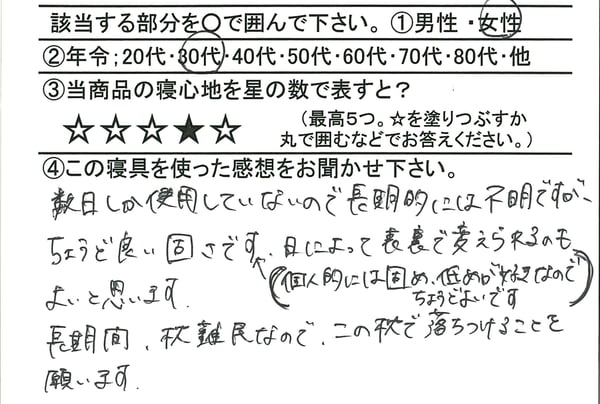 該当する部分を〇で囲んで下さい。①男性・女性
②年令;20代・30代・40代・50代・60代・70代・80代・他
③当商品の寝心地を星の数で表すと?
☆☆☆★☆
(最高5つ。☆を塗りつぶすか
丸で囲むなどでお答えください。)
④この寝具を使った感想をお聞かせ下さい。
数日しか使用していないので長期的には不明ですが、
ちょうど良い固さです。日によって表裏で変えられるのも
(個人的には固め、低めが好きなので
ちょうどよいです)
よいと思います。
長期間、枕難民なので、この枕で落ちつけることを
願います。